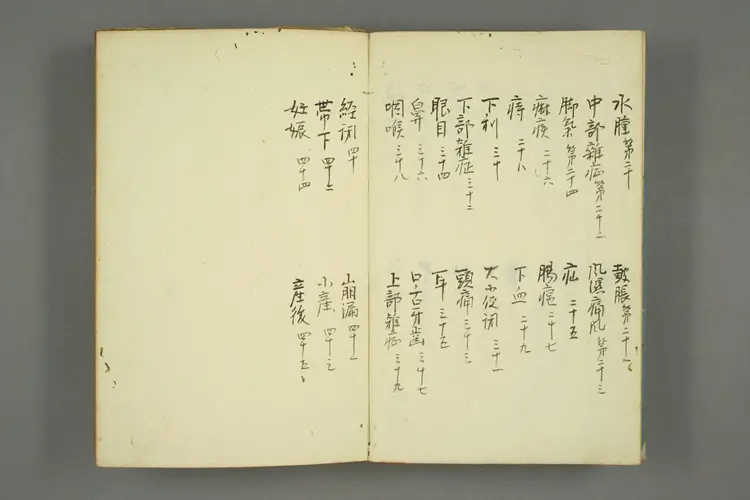 水腫第二十
鼓脹第二十一
中部雑症第二十二
風湿痛風第二十三
脚氣第二十四
疝二十五
麻疾二十六
腸癰二十七
痔二十八
下血二十九
下利三十
大小便閉三十一
下部雑症三十二
頭痛三十三
眼目三十四
耳三十五
鼻三十六
口舌牙歯三十七
咽喉三十八
上部雑症三十九
経閉四十
崩漏四十一
帯下四十二
小産四十三
妊娠四十四
産後四十五